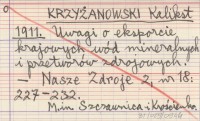 KRZYŻANOWSKI Kalikst
1911. Uwagi o eksporcie
krajowych wód mineralnych
i przetworów zdrojowych.
— Nasze Zdroje 2, nr 18:
227-232.
M.in. Szczawnica i Krościenko.